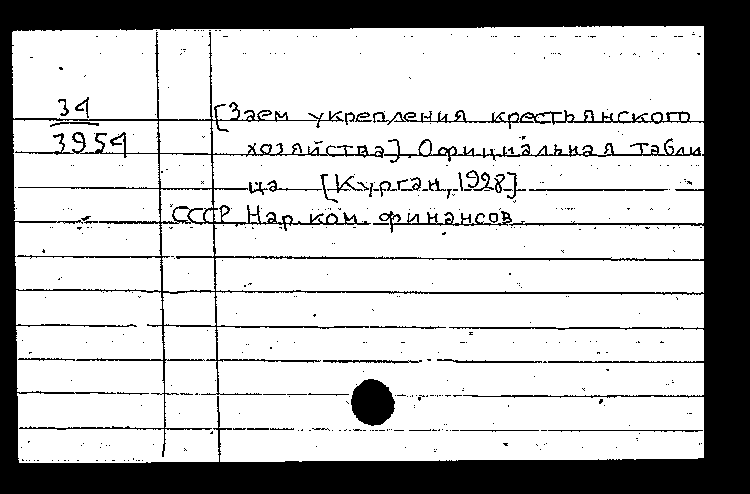 34
3954
[Заем укрепления крестьянского
хозяйства]. Официальная табли
ца. [Курган, 1928].
СССР. Нар. ком. финансов.